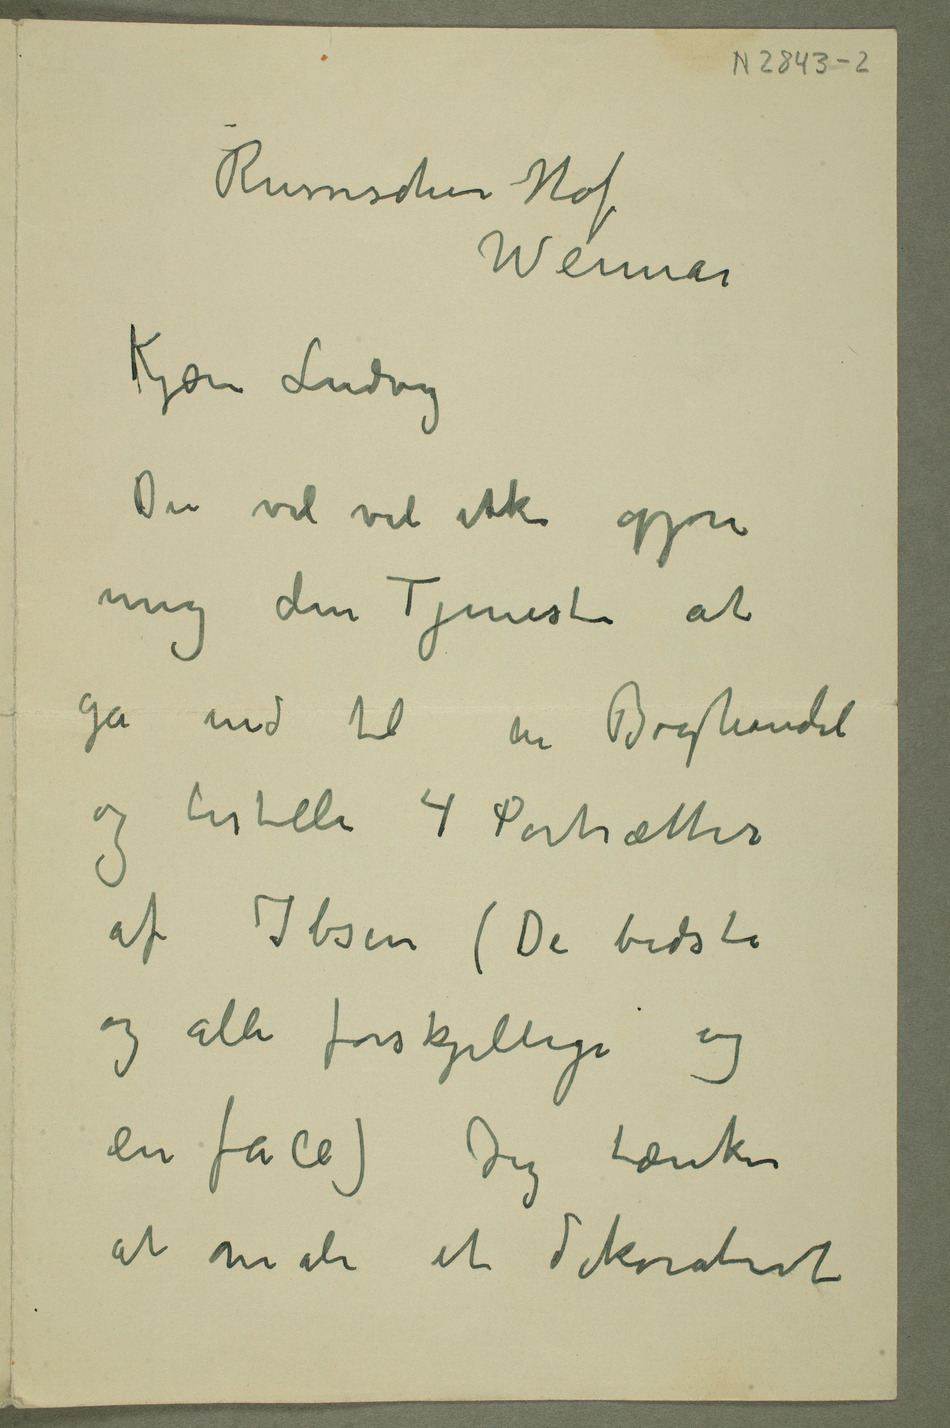 N 2843-2
Russischer Hof
Weimar
Kjære Ludvig
Du vil vel ikke gjøre
mig den Tjeneste at
gå ind til en Boghandel
og bestille 4 Portrætter
af Ibsen (De bedste
og alle forskjellige og
en face) Jeg tænker
at male et dekorativt